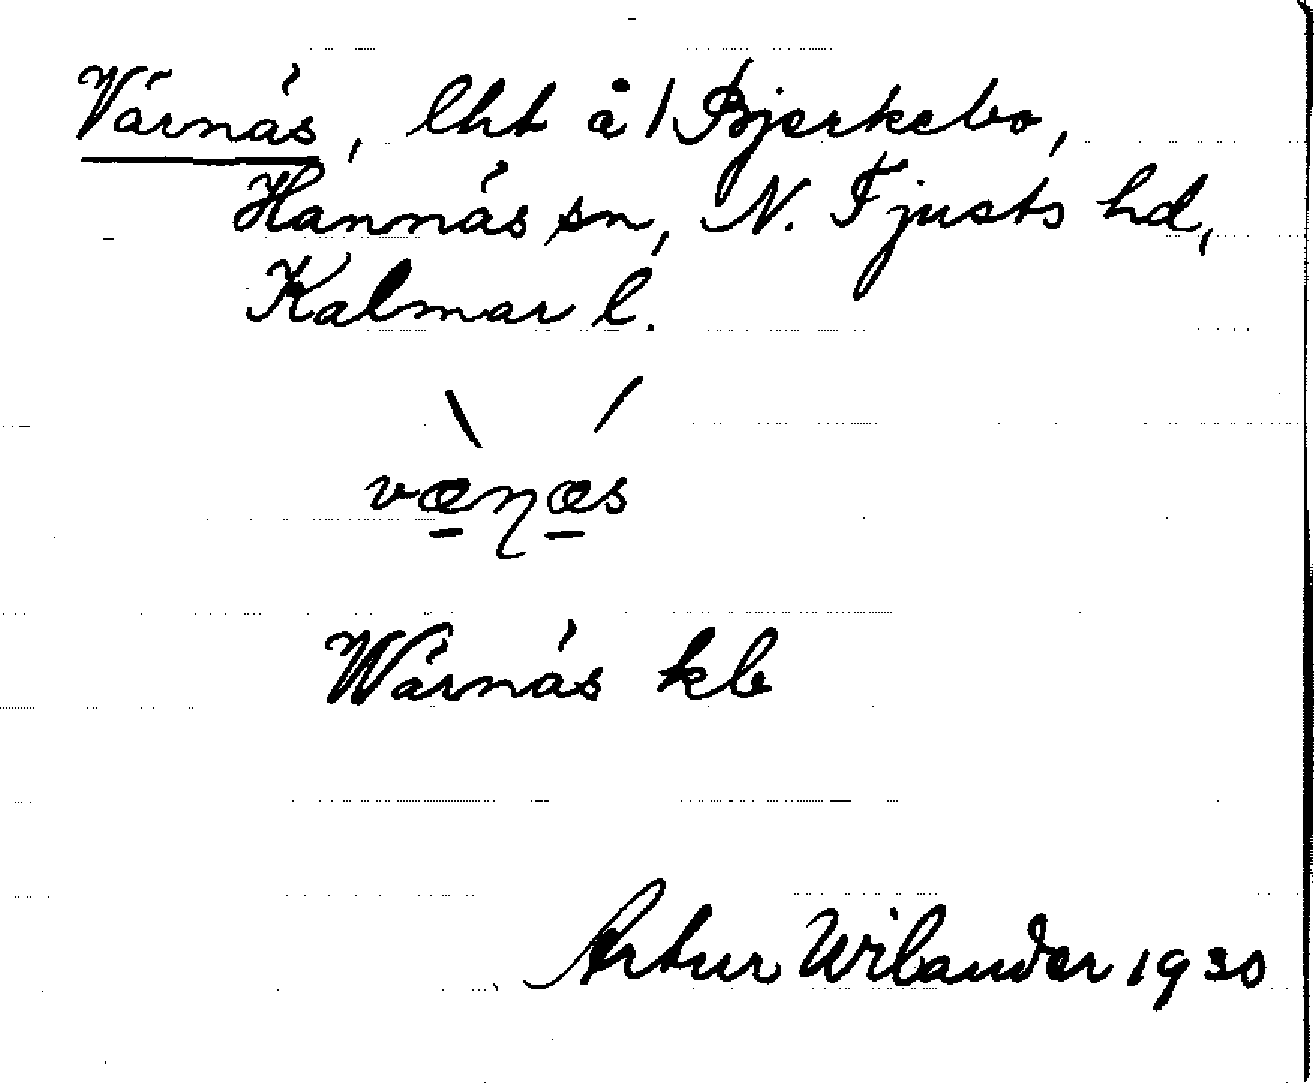 Värnäs, lht å /Bjerkebo,
Hannäs sn, N. Tjusts hd,
Kalmar l.
væ̱ɳæ̱s
Wärnäs kb
Artur Wilander 1930